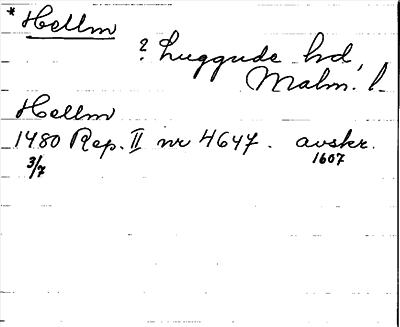 * Hellm
? Luggude hd,
Malm. l.
Hellm
1480 Rep. II nr 4647. avskr.
3/7 1607